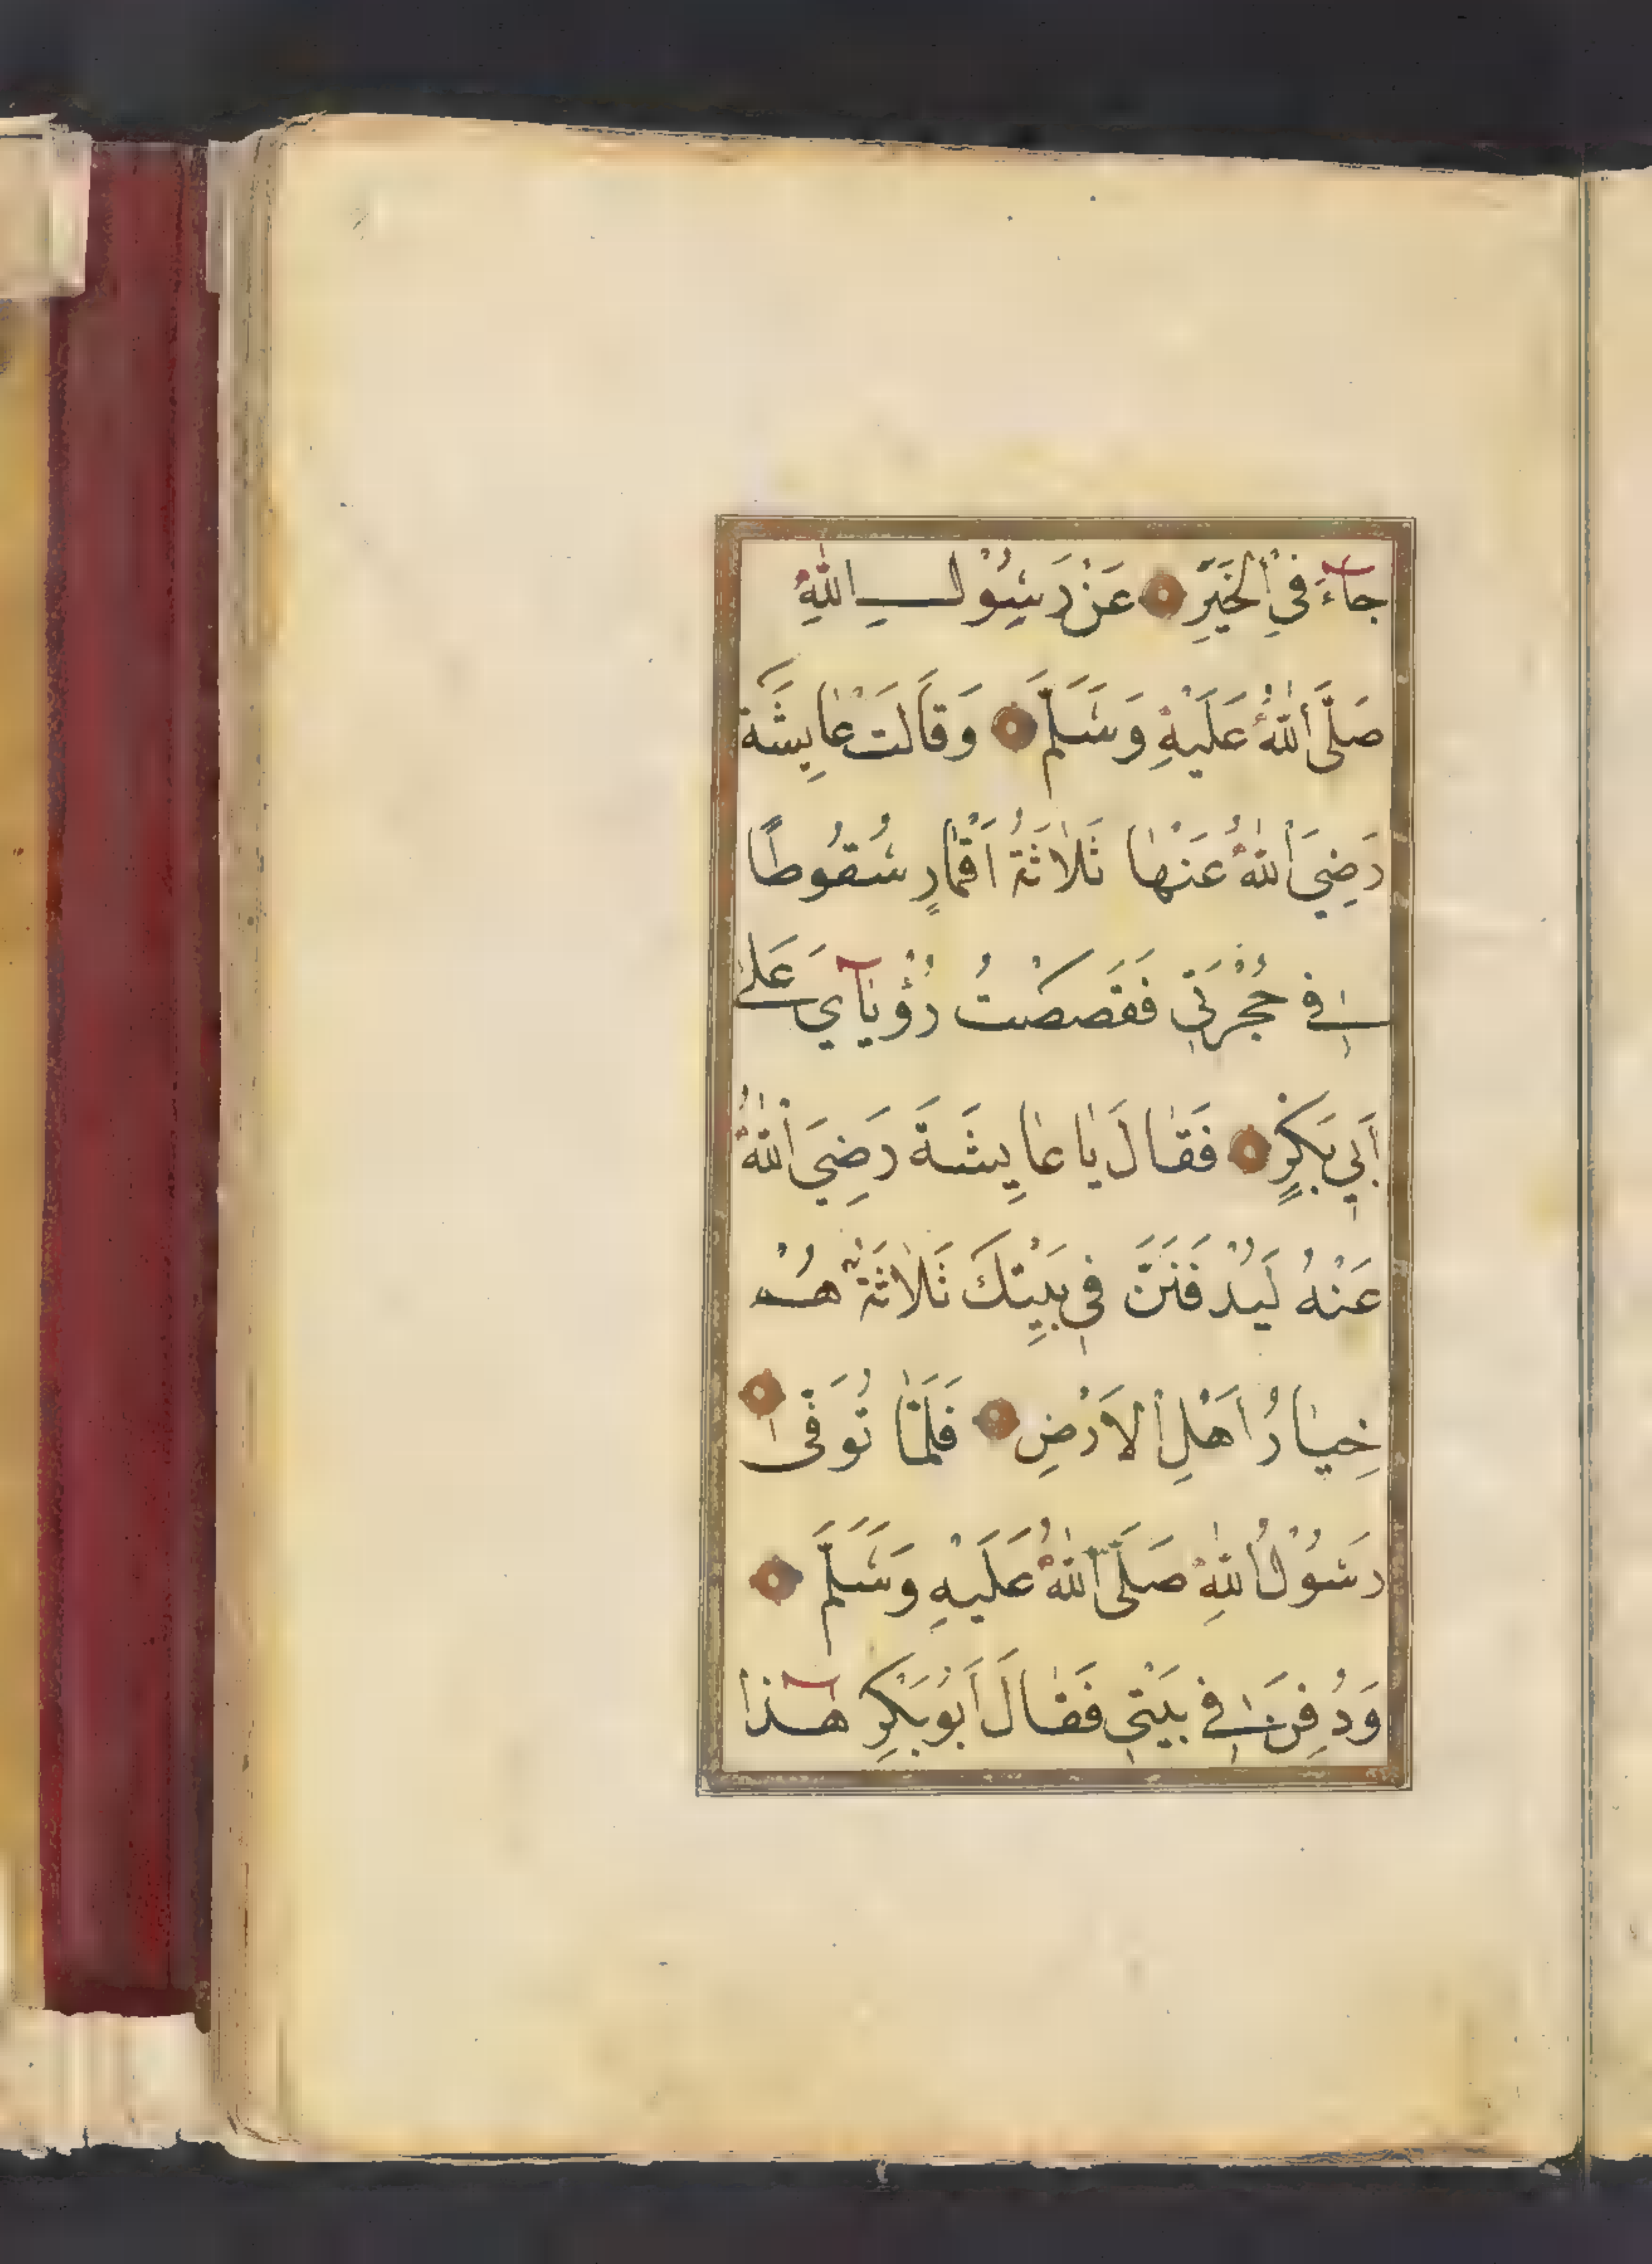 جَآءَ فِي الْخَيَرِّ عَنْ رَسُوْلِ اللّٰهِ
صَلَّى اللّٰهُ عَلَيْهِ وَسَلَّمَ وَقَالَتْ عَايِشَة
رَضِيَ اللّٰهُ عَنْهَا ثَلَاثَةُ اَقْمَارٍ سُقُوطًا
فِي حُجْرَتِي فَقَصَصْتُ رُؤْيَآيَ عَلٰى
أَبِي بَكْرٍ فَقَالَ يَا عَايِشَةَ رَضِيَ اللّٰهُ
عَنْهُ لَيُدْفَنَنَّ فِي بَيْتِكَ ثَلَاثَةٌ هُمْ
خِيَارُ اَهْلِ الْاَرْضِ فَلَمَّا تُوَفِّىَ
رَسُوْلُ اللّٰهِ صَلَّى اللّٰهُ عَلَيْهِ وَسَلَّمَ
وَدُفِنَ فِي بَيْتِي فَقَالَ اَبُو بَكْرٍ هٰذَا